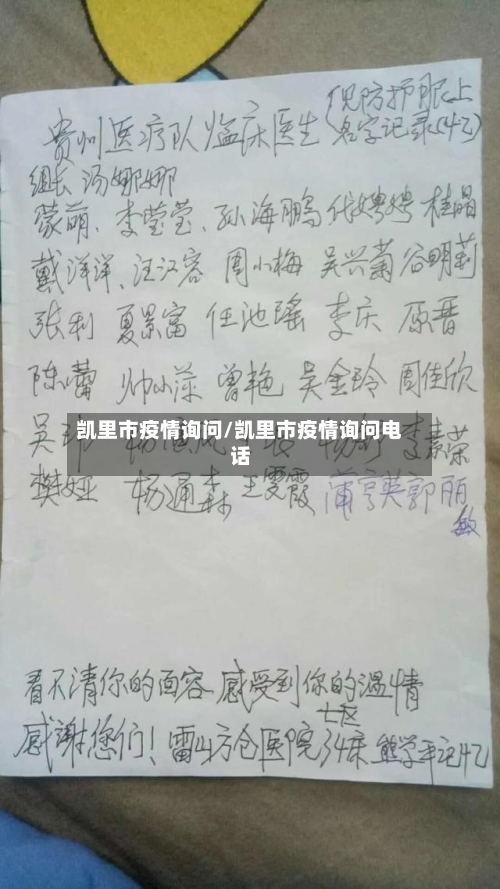 贵州医疗队临床医生(见防护服上
名字记录(4乙)
组长 汤娜娜
蒙萌、李莹莹、孙海鹏 代娉娉 桂晶
戴洋洋、汪汉容 周小梅 吴兴菊 谷明莉
张利 夏景富 任池瑶 李庆 原晋
陈蕾 帅小萍 曾艳 吴金玲 周佳欣
吴
凯里市疫情询问/凯里市疫情询问电
话
樊娅 杨通森 王雯霞 蒲亨英 郭丽
敏
看不清你的面容 感受到你的温情
七区
感谢您们! 雷山方仓医院34床 熊学平记4乙